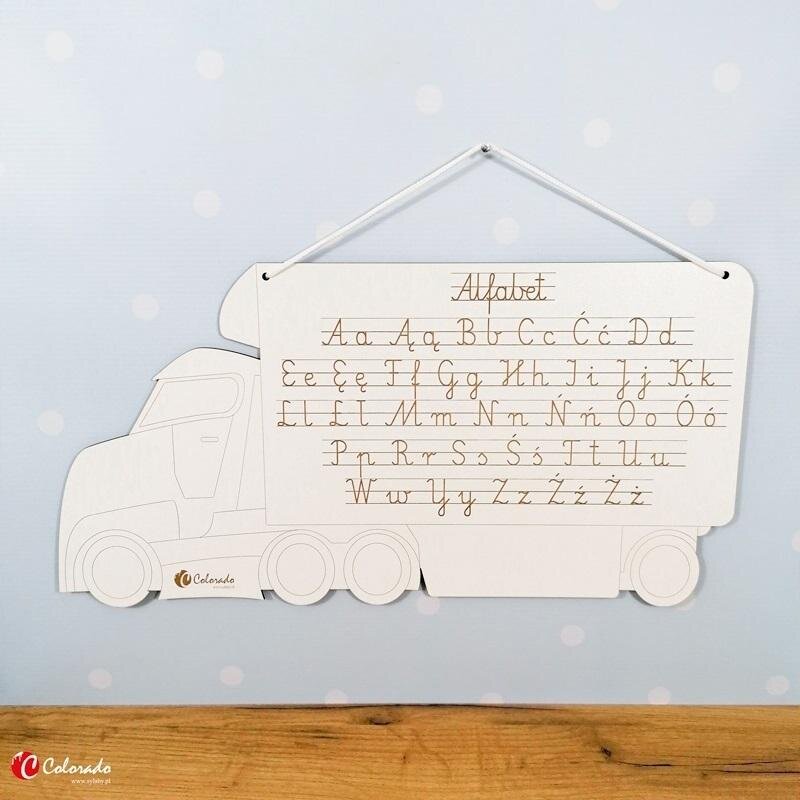 Alfabet
A a Ą ą B b C c Ć ć D d
E e Ę ę F f G g H h I i J j K k
L l Ł ł M m N n Ń ń O o Ó ó
P p R r S s Ś ś T t U u
W w Y y Z z Ź ź Ż ż
Colorado
Colorado
www.sylaby.pl